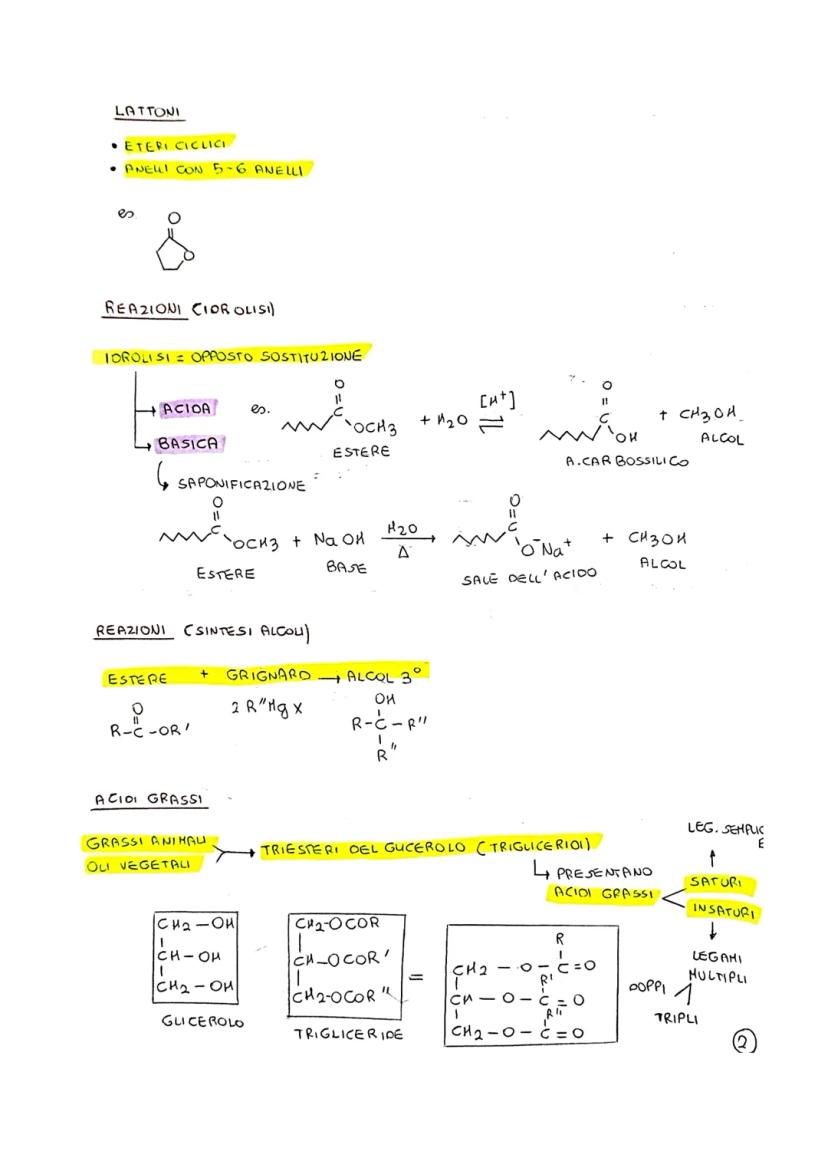 LATTONI
• ETERI CICLICI
• ANELLI CON 5-6 ANELLI
es.
O
O
REAZIONI (IDROLISI)
IDROLISI = OPPOSTO SOSTITUZIONE
→ ACIDA
es.
O
C
OCH3
ESTERE
+ H2O
[H+]
⇌
O
C
OH
A. CARBOSSILICO
+ CH3OH
ALCOL
→ BASICA
↳ SAPONIFICAZIONE
O
C
OCH3 + NaOH
H2O
Δ
→
O
C
O⁻Na⁺
+ CH3OH
ESTERE
BASE
SALE DELL'ACIDO
ALCOL
REAZIONI (SINTESI ALCOLI)
ESTERE + GRIGNARD → ALCOL 3°
O
R-C-OR'
2 R"Mg X
OH
R-C-R"
R"
ACIDI GRASSI
GRASSI ANIMALI
OLI VEGETALI
→ TRIESTERI DEL GLICEROLO (TRIGLICERIDI)
↳ PRESENTANO
ACIDI GRASSI
LEG. SEMPLIC
E
SATURI
INSATURI
LEGAMI
MULTIPLI
DOPPI
TRIPLI
CH2-OH
CH-OH
CH2-OH
GLICEROLO
CH2-OCOR
CH-OCOR'
CH2-OCOR"
TRIGLICERIDE
=
R
CH2-O-C=O
R'
CH-O-C=O
R"
CH2-O-C=O
2